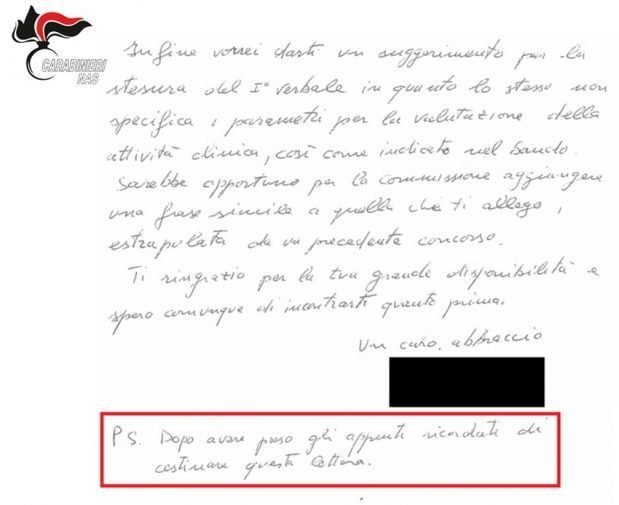 CARABINIERI
NAS
Infine vorrei darti un suggerimento per la
stesura del I° verbale in quanto lo stesso non
specifica i parametri per la valutazione della
attività clinica, così come indicato nel bando.
Sarebbe opportuno per la commissione aggiungere
una frase simile a quella che ti allego,
estrapolata da un precedente concorso.
Ti ringrazio per la tua grande disponibilità e
spero comunque di incontrarti quanto prima.
Un caro abbraccio
PS. Dopo avere preso gli appunti ricordati di
cestinare questa lettera.